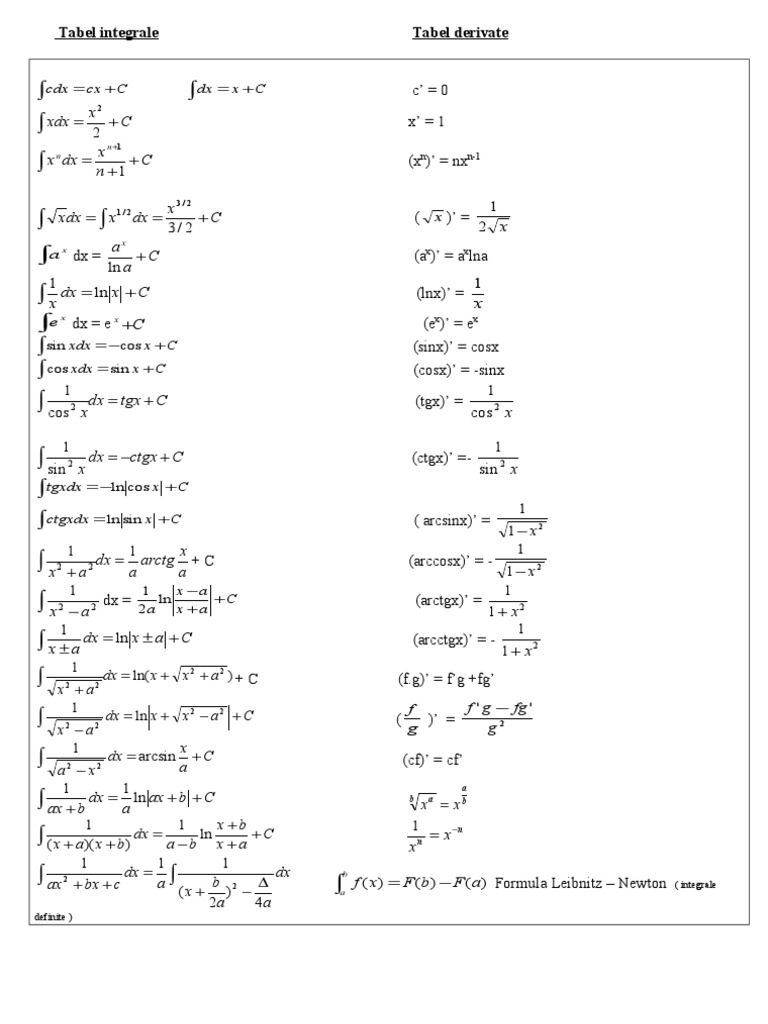 Tabel integrale Tabel derivate
∫cdx = cx + C ∫dx = x + C c' = 0
∫xdx = x²/2 + C x' = 1
∫xⁿdx = xⁿ⁺¹/(n+1) + C (xⁿ)' = nxⁿ⁻¹
∫√x dx = ∫x^(1/2) dx = x^(3/2)/(3/2) + C (√x)' = 1/(2√x)
∫aˣ dx = aˣ/ln a + C (aˣ)' = aˣlna
∫1/x dx = ln|x| + C (lnx)' = 1/x
∫eˣ dx = eˣ + C (eˣ)' = eˣ
∫sin xdx = −cos x + C (sinx)' = cosx
∫cos xdx = sin x + C (cosx)' = -sinx
∫1/cos² x dx = tgx + C (tgx)' = 1/cos² x
∫1/sin² x dx = −ctgx + C (ctgx)' =- 1/sin² x
∫tgxdx = −ln|cos x| + C
∫ctgxdx = ln|sin x| + C ( arcsinx)' = 1/√(1−x²)
∫1/(x² + a²) dx = 1/a arctg x/a + C (arccosx)' = - 1/√(1−x²)
∫1/(x² − a²) dx = 1/2a ln|(x−a)/(x+a)| + C (arctgx)' = 1/(1+x²)
∫1/(x±a) dx = ln|x ± a| + C (arcctgx)' = - 1/(1+x²)
∫1/√(x² + a²) dx = ln(x + √(x² + a²)) + C (f g)' = f'g +fg'
∫1/√(x² − a²) dx = ln|x + √(x² − a²)| + C (f/g)' = (f'g − fg')/g²
∫1/√(a² − x²) dx = arcsin x/a + C (cf)' = cf'
∫1/(ax+b) dx = 1/a ln|ax + b| + C ᵇ√(xᵃ) = x^(a/b)
∫1/((x+a)(x+b)) dx = 1/(a−b) ln (x+b)/(x+a) + C 1/xⁿ = x⁻ⁿ
∫1/(ax² + bx + c) dx = 1/a ∫1/((x + b/2a)² − Δ/4a) dx ∫ₐᵇ f(x) = F(b) − F(a) Formula Leibnitz – Newton ( integrale
definite )